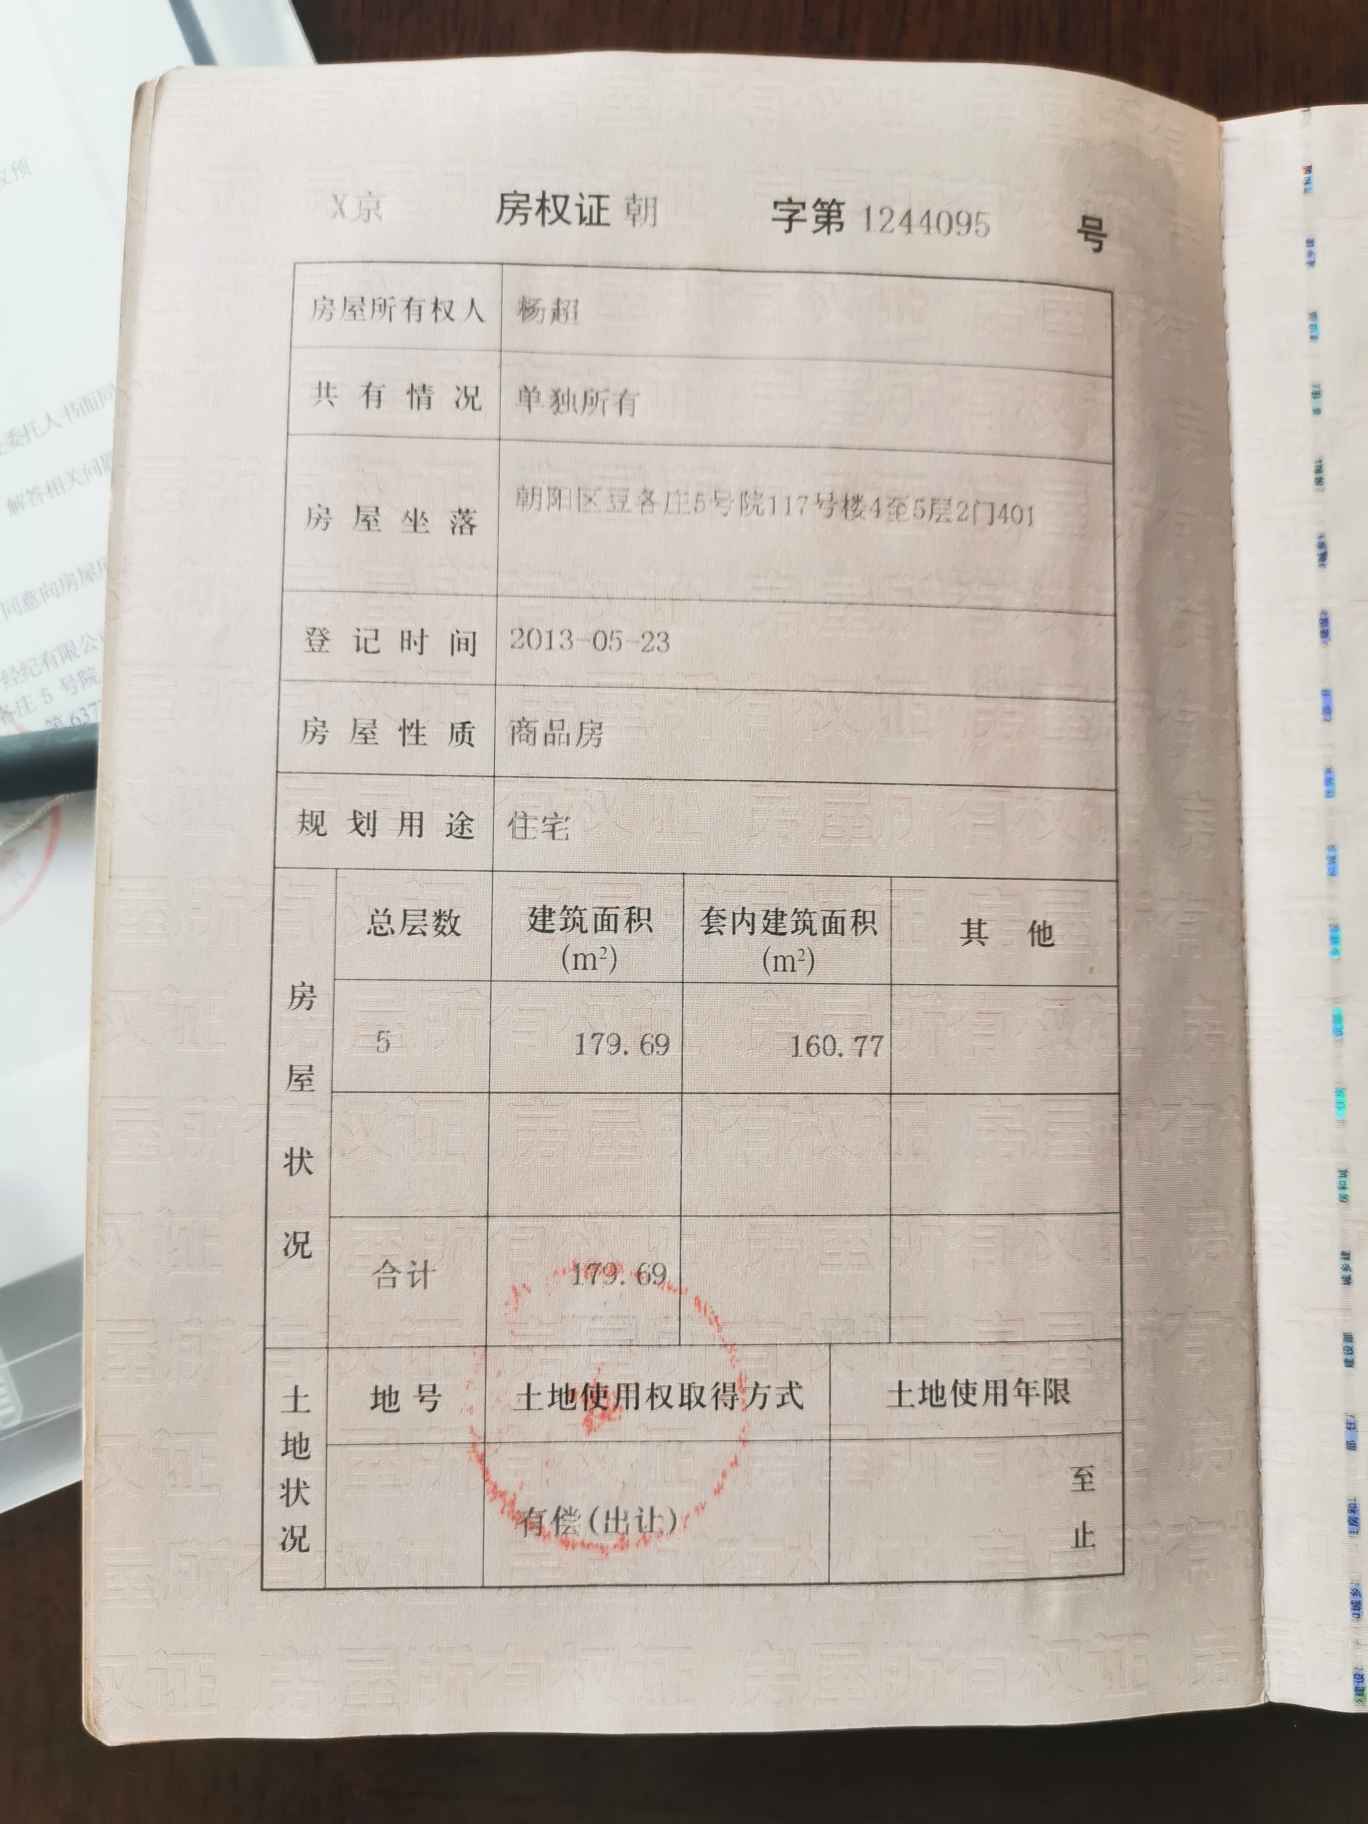 X京 房权证 朝 字第 1244095 号
房屋所有权人 杨超
共有情况 单独所有
房屋坐落 朝阳区豆各庄5号院117号楼4至5层2门401
登记时间 2013-05-23
房屋性质 商品房
规划用途 住宅
房屋状况
总层数 建筑面积(m²) 套内建筑面积(m²) 其他
5 179.69 160.77
合计 179.69
土地状况
地号 土地使用权取得方式 土地使用年限
有偿(出让) 至
止
委托人书面同
解答相关问
同意向房屋
经纪有限公
各庄 5 号院
第 637